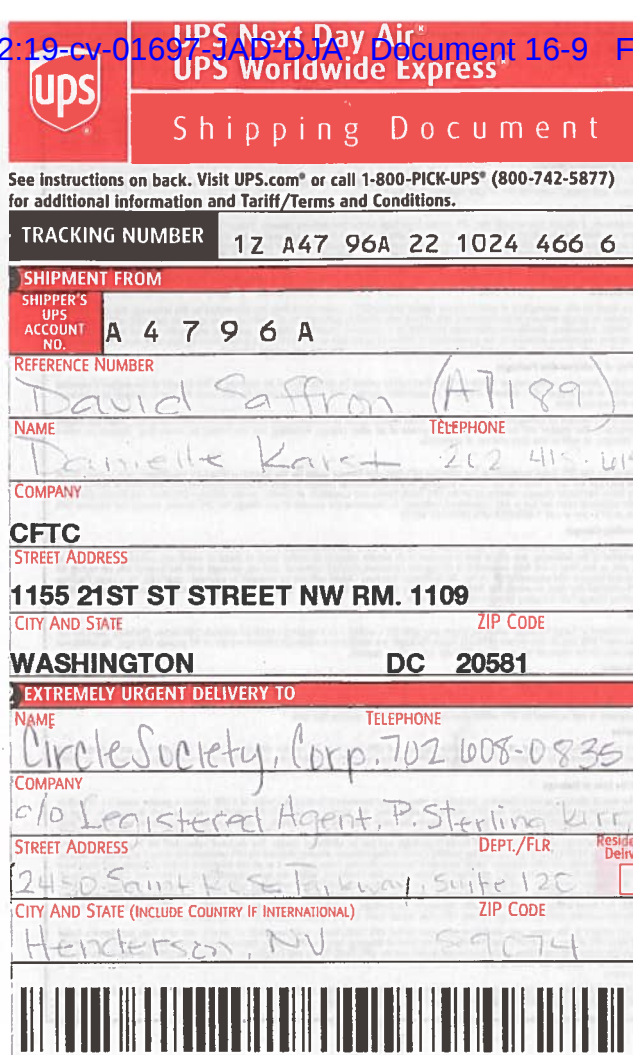 2:19-cv-01697-JAD-DJA Document 16-9 F
UPS Next Day Air®
UPS Worldwide Express
ups
Shipping Document
See instructions on back. Visit UPS.com® or call 1-800-PICK-UPS® (800-742-5877)
for additional information and Tariff/Terms and Conditions.
TRACKING NUMBER 1Z A47 96A 22 1024 466 6
SHIPMENT FROM
SHIPPER'S
UPS
ACCOUNT
NO.
A 4 7 9 6 A
REFERENCE NUMBER
David Saffron (A7189)
NAME TELEPHONE
Danielle Karst 202 418-61
COMPANY
CFTC
STREET ADDRESS
1155 21ST ST STREET NW RM. 1109
CITY AND STATE ZIP CODE
WASHINGTON DC 20581
EXTREMELY URGENT DELIVERY TO
NAME TELEPHONE
Circle Society, Corp. 702 608-0835
COMPANY
c/o Registered Agent, P. Sterling Kerr,
STREET ADDRESS DEPT./FLR. Reside
Deliv
2450 Saint Rose Parkway, Suite 120
CITY AND STATE (INCLUDE COUNTRY IF INTERNATIONAL) ZIP CODE
Henderson, NV 89074